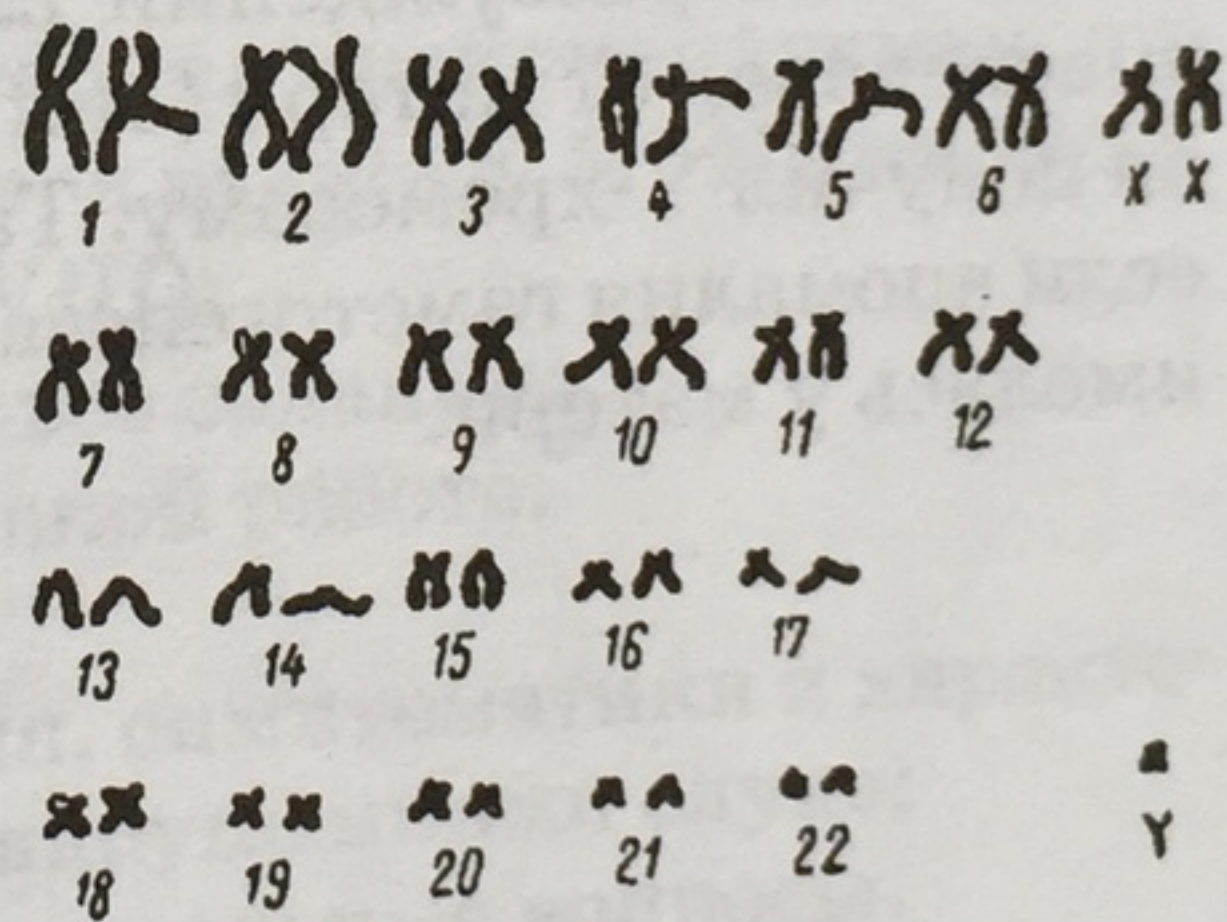 1 2 3 4 5 6 X X
7 8 9 10 11 12
13 14 15 16 17
18 19 20 21 22 Y